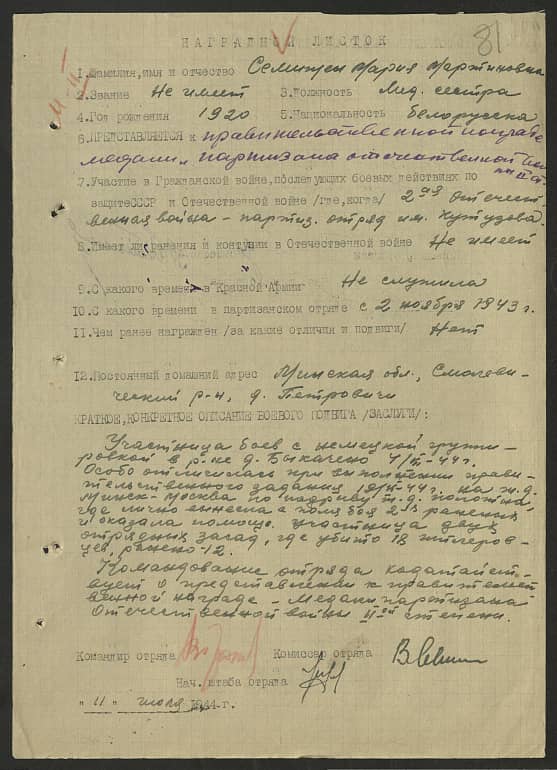 81
НАГРАДНОЙ ЛИСТОК
1.Фамилия,имя и отчество Семижен Мария Мартиновна
2.Звание Не имеет 3.Должность Мед. сестра
4.Год рождения 1920 5.Национальность белорусска
6.ПРЕДСТАВЛЯЕТСЯ к правительственной награде
медали „партизана отечественной
7.Участие в Гражданской войне,последующих боевых действиях по
защитеСССР и Отечественной войне /где,когда/ 2ая отечест-
венная война – партиз. отряд им. Кутузова.
8.Имеет ли ранения и контузии в Отечественной войне Не имеет
9.С какого времени в Красной Армии Не служила
10.С какого времени в партизанском отряде с 2 ноября 1943 г
11.Чем ранее награжден /за какие отличия и подвиги/ Нет
12.Постоянный домашний адрес Минская обл., Смолеви-
ческий р-н, д. Петровичи
КРАТКОЕ,КОНКРЕТНОЕ ОПИСАНИЕ БОЕВОГО ПОДВИГА /ЗАСЛУГИ/:
Участница боев с немецкой группи-
ровкой в р-не д. Быкачено 44г.
Особо отличилась при выполнении прави-
тельственного задания 44г. на ж.д.
Минск-Москва по подрыву ж.д. полотна,
где лично вынесла с поля боя 2х раненых
и оказала помощь. участница двух
отрядных засад, где убито 18 гитлеров-
цев, ранено-12.
Командование отряда ходатайст-
вует о представлении к правительст-
венной награде – Медали партизана
Отечественной войны IIой степени.
Командир отряда
Комиссар отряда
Нач. штаба отряда
" 11 " июля 1944 г.